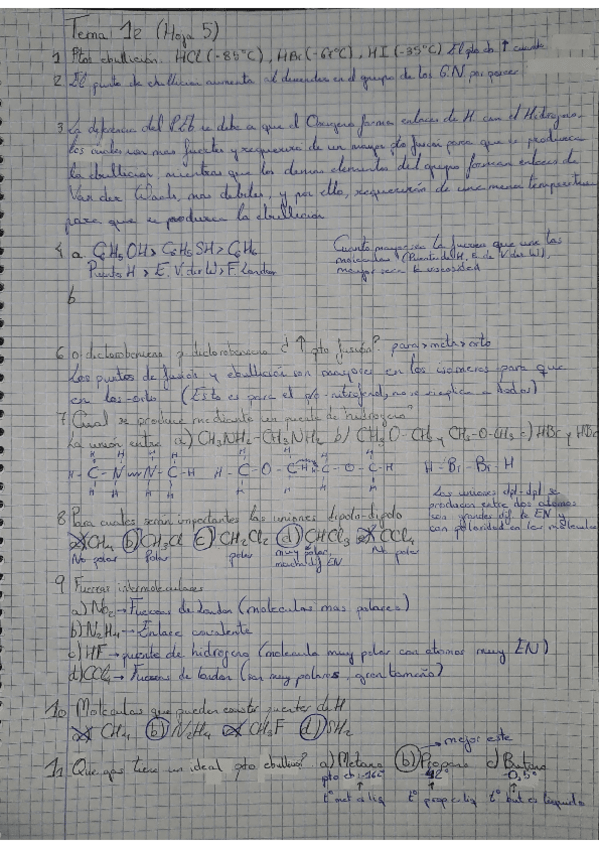 Tema 12 (Hoja 5)
1 Ptos ebullición. HCl (-85°C), HBr (-67°C), HI (-35°C) El pto eb. ↑ cuando
2 El punto de ebullición aumenta al descender en el grupo de los G.N por poseer
3 La diferencia del P.Eb se debe a que el Oxígeno forma enlaces de H con el Hidrógeno
los cuales son mas fuertes y requieren de un mayor pto fusión para que se produzca
la ebullición, mientras que los demas elementos del grupo forman enlaces de
Van der Waals, mas debiles, y por ello, requerirán de una menor temperatura
para que se produzca la ebullición
4 a. C6H5OH > C6H5SH > C6H6
Puente H > E. V. der W > F London
Cuanto mayor sea la fuerza que une las
moléculas (Puente de H, E. de V. der W),
mayor sera la viscosidad
b
6 o diclorobenceno p diclorobenceno ¿ ↑ pto fusión? para > meta > orto
Los puntos de fusión y ebullición son mayores en los isómeros para que
en los orto (Esto es para el p/o-nitrofenol, no se aplica a todos)
7 ¿Cual se produce mediante un puente de hidrogeno?
La unión entre a) CH3NH2 - CH3NH2 b) CH3-O-CH3 y CH3-O-CH3 c) HBr y HBr
H H H H H H H H
H-C-N N-C-H H-C-O-C-H C-O-C-H H-Br-Br-H
H H H H H H
Las uniones dpl-dpl se
producen entre dos atomos
con grandes dif de EN y
con polaridad en las moleculas
8 Para cuales serán importantes las uniones dipolo-dipolo
a) CH4 b) CH3Cl c) CH2Cl2 d) CHCl3 e) CCl4
No polar polar polar muy polar, No polar
mucha dif EN
9 Fuerzas intermoleculares
a) → Fuerzas de London (moleculas mas polares)
b) N2H4 → Enlace covalente
c) HF → puente de hidrogeno (molecula muy polar con atomos muy EN)
d) CCl4 → Fuerzas de London (son muy polares, gran tamaño)
10 Moleculas que pueden constr puentes de H
a) CH4 b) N2H4 c) CH3F d) SH2
→ mejor este
11 Que gas tiene un ideal pto ebullic? a) Metano b) Propano c) Butano
pto eb: -42° -0,5°
↑ ↑ ↑
t° met es liq t° prop es liq t° but es liquido